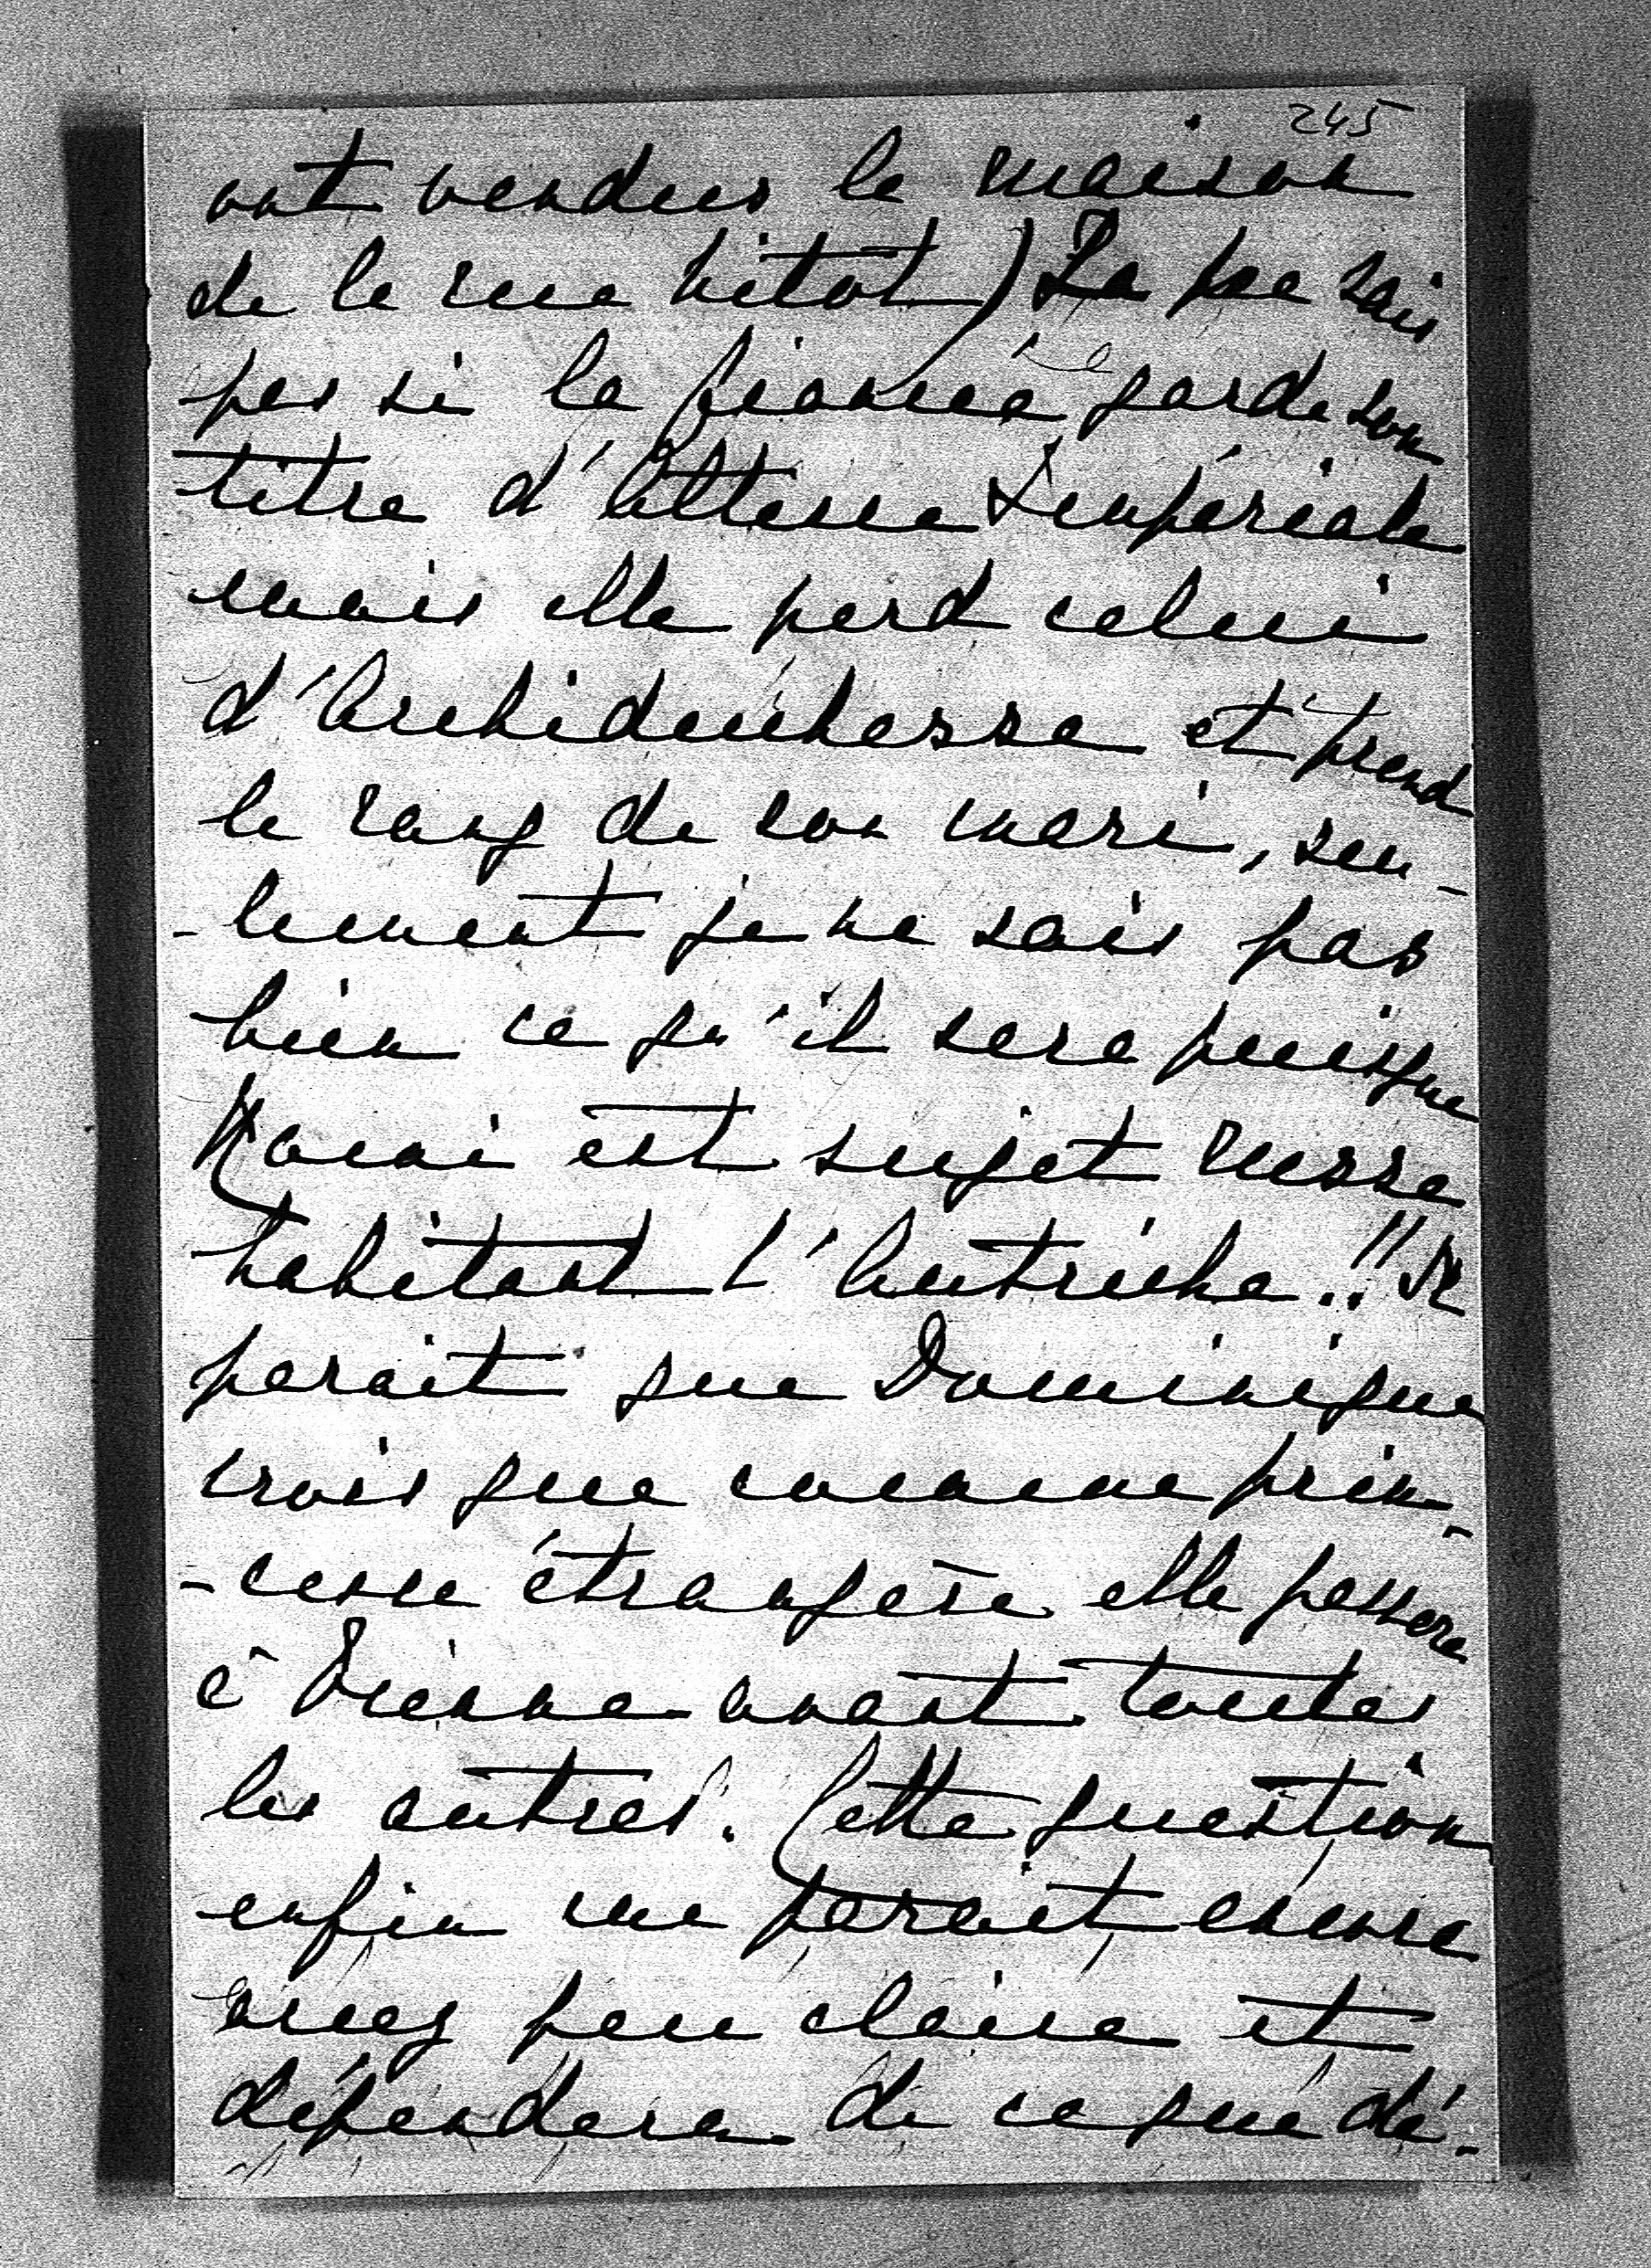 245
ont vendus la maison
de la rue Nitot) Je ne sais
pas si la fiancée garde son
titre d'Altesse Impériale
mais elle perd celui
d'Archiduchesse et prend
le rang de son mari, seu-
-lement je ne sais pas
bien ce qu'il sera puisque
est sujet russe
habitant l'Autriche!! Il
parait que Dominique
crois que comme prin-
-cesse étrangère elle passera
à Vienne avant toutes
les autres. Cette question
enfin me parait encore
assez peu claire et
dépendera de ce que dé-